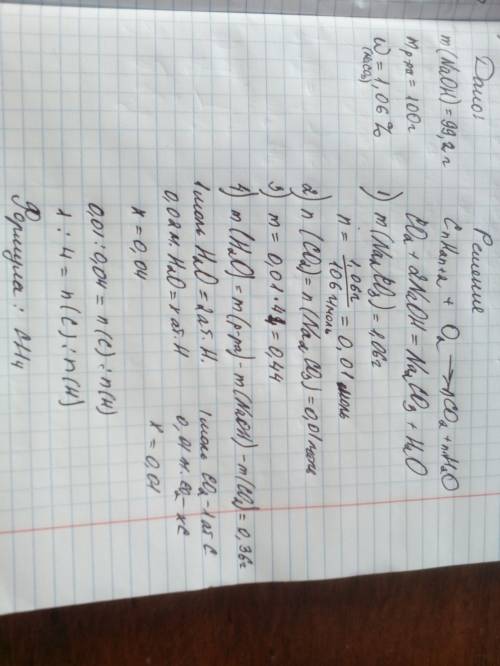 Дано:
m(NaOH) = 99,2 г
m р-ра = 100 г
w = 1,06 %
(Na2CO3)
Решение
CnH2n+2 + O2 → nCO2 + nH2O
CO2 + 2NaOH = Na2CO3 + H2O
1) m(Na2CO3) = 1,06г
n = 1,06г / 106 г/моль = 0,01 моль
2) n(CO2) = n(Na2CO3) = 0,01 моль
3) m = 0,01 · 44 = 0,44
4) m(H2O) = m(р-ра) - m(NaOH) - m(CO2) = 0,36г
1 моль H2O = 2 ат. H. 1 моль CO2 - 1 ат C
0,02 м. H2O = x ат. H 0,01 м. CO2 - xC
x = 0,04 x = 0,01
0,01 : 0,04 = n(C) : n(H)
1 : 4 = n(C) : n(H)
Формула: CH4